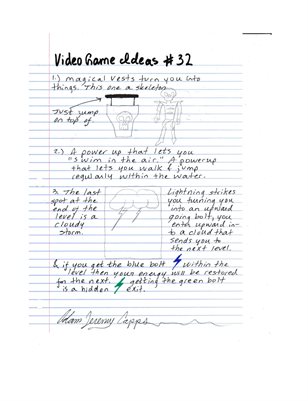 Video Game Ideas #32
1.) magical vests turn you into
things. This one a skeleton
Just jump
on top of.
2.) A power up that lets you
"swim in the air." A powerup
that lets you walk & jump
regularly within the water.
3. The last
spot at the
end of the
level is a
cloudy
storm.
Lightning strikes
you turning you
into an upward
going bolt, you
enter upward in-
to a cloud that
sends you to
the next level.
& if you get the blue bolt within the
level then your energy will be restored
for the next. getting the green bolt
is a hidden exit.
Adam Jeremy Capps